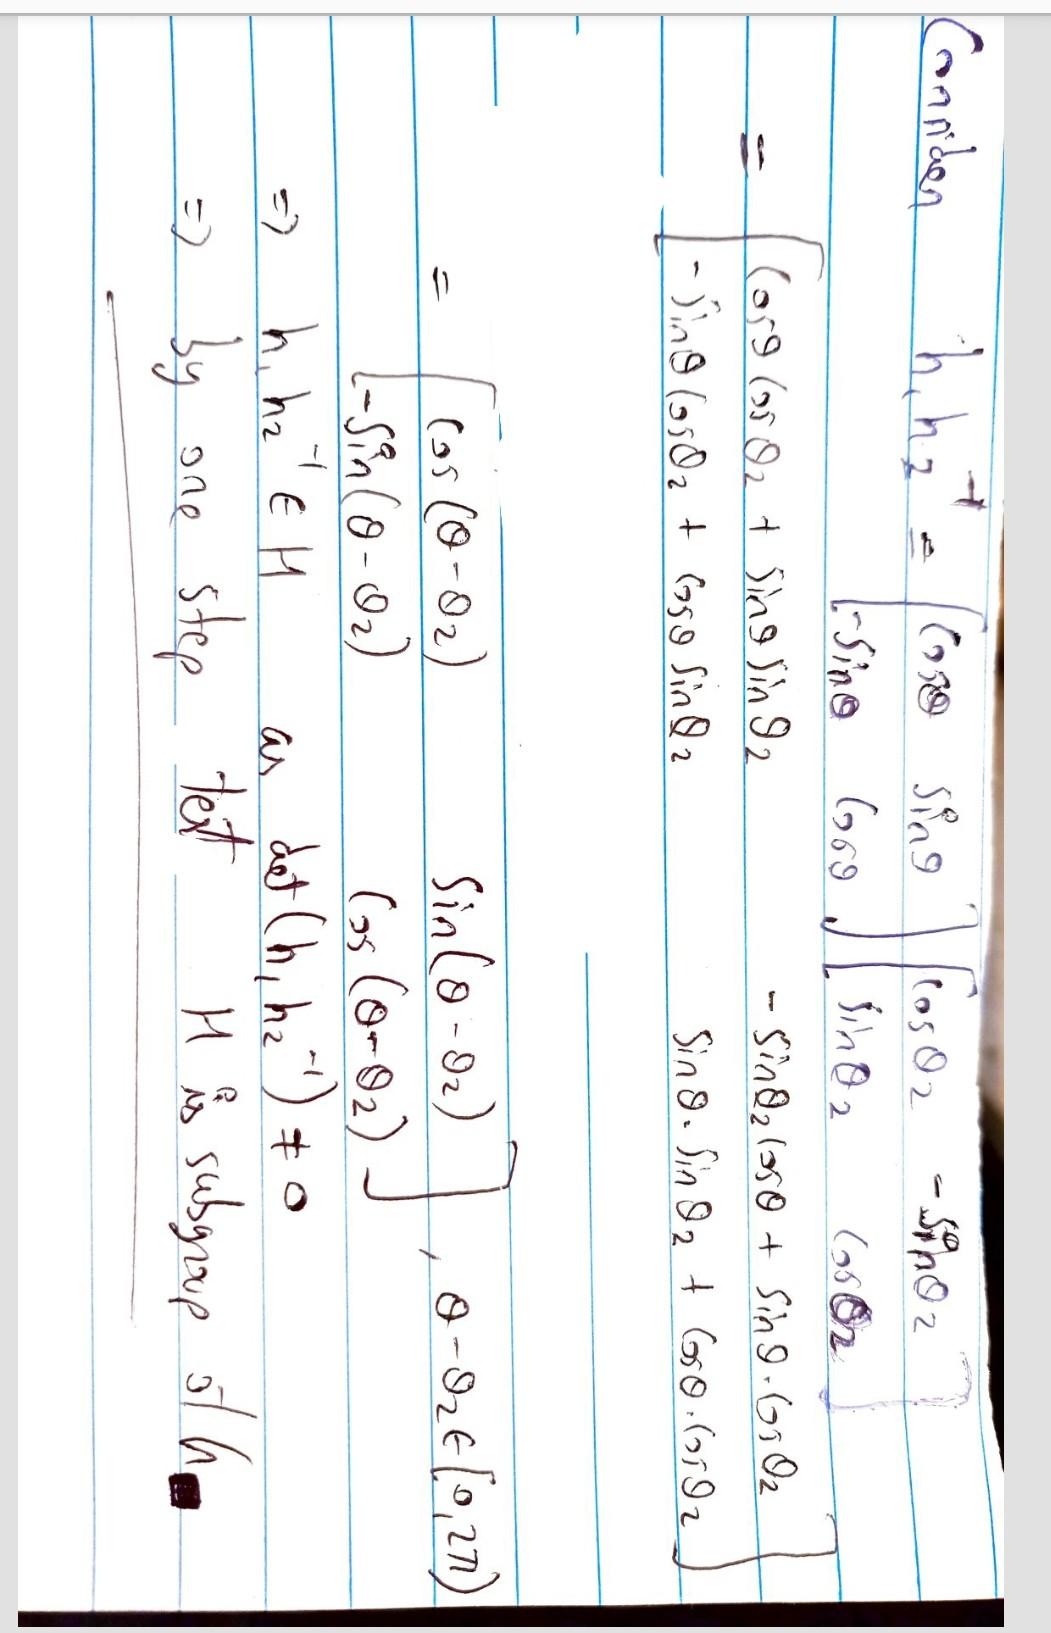 Consider h₁h₂⁻¹ = [cosθ sinθ] [cosθ₂ -sinθ₂]
[-sinθ cosθ] [sinθ₂ cosθ₂]
= [cosθ cosθ₂ + sinθ sinθ₂ -sinθ₂ cosθ + sinθ·cosθ₂]
[-sinθ cosθ₂ + cosθ sinθ₂ sinθ·sinθ₂ + cosθ·cosθ₂]
= [cos(θ-θ₂) sin(θ-θ₂)] , θ-θ₂ ∈ [0,2π)
[-sin(θ-θ₂) cos(θ-θ₂)]
⇒ h₁h₂⁻¹ ∈ H as det(h₁h₂⁻¹) ≠ 0
⇒ by one step test H is subgroup of G